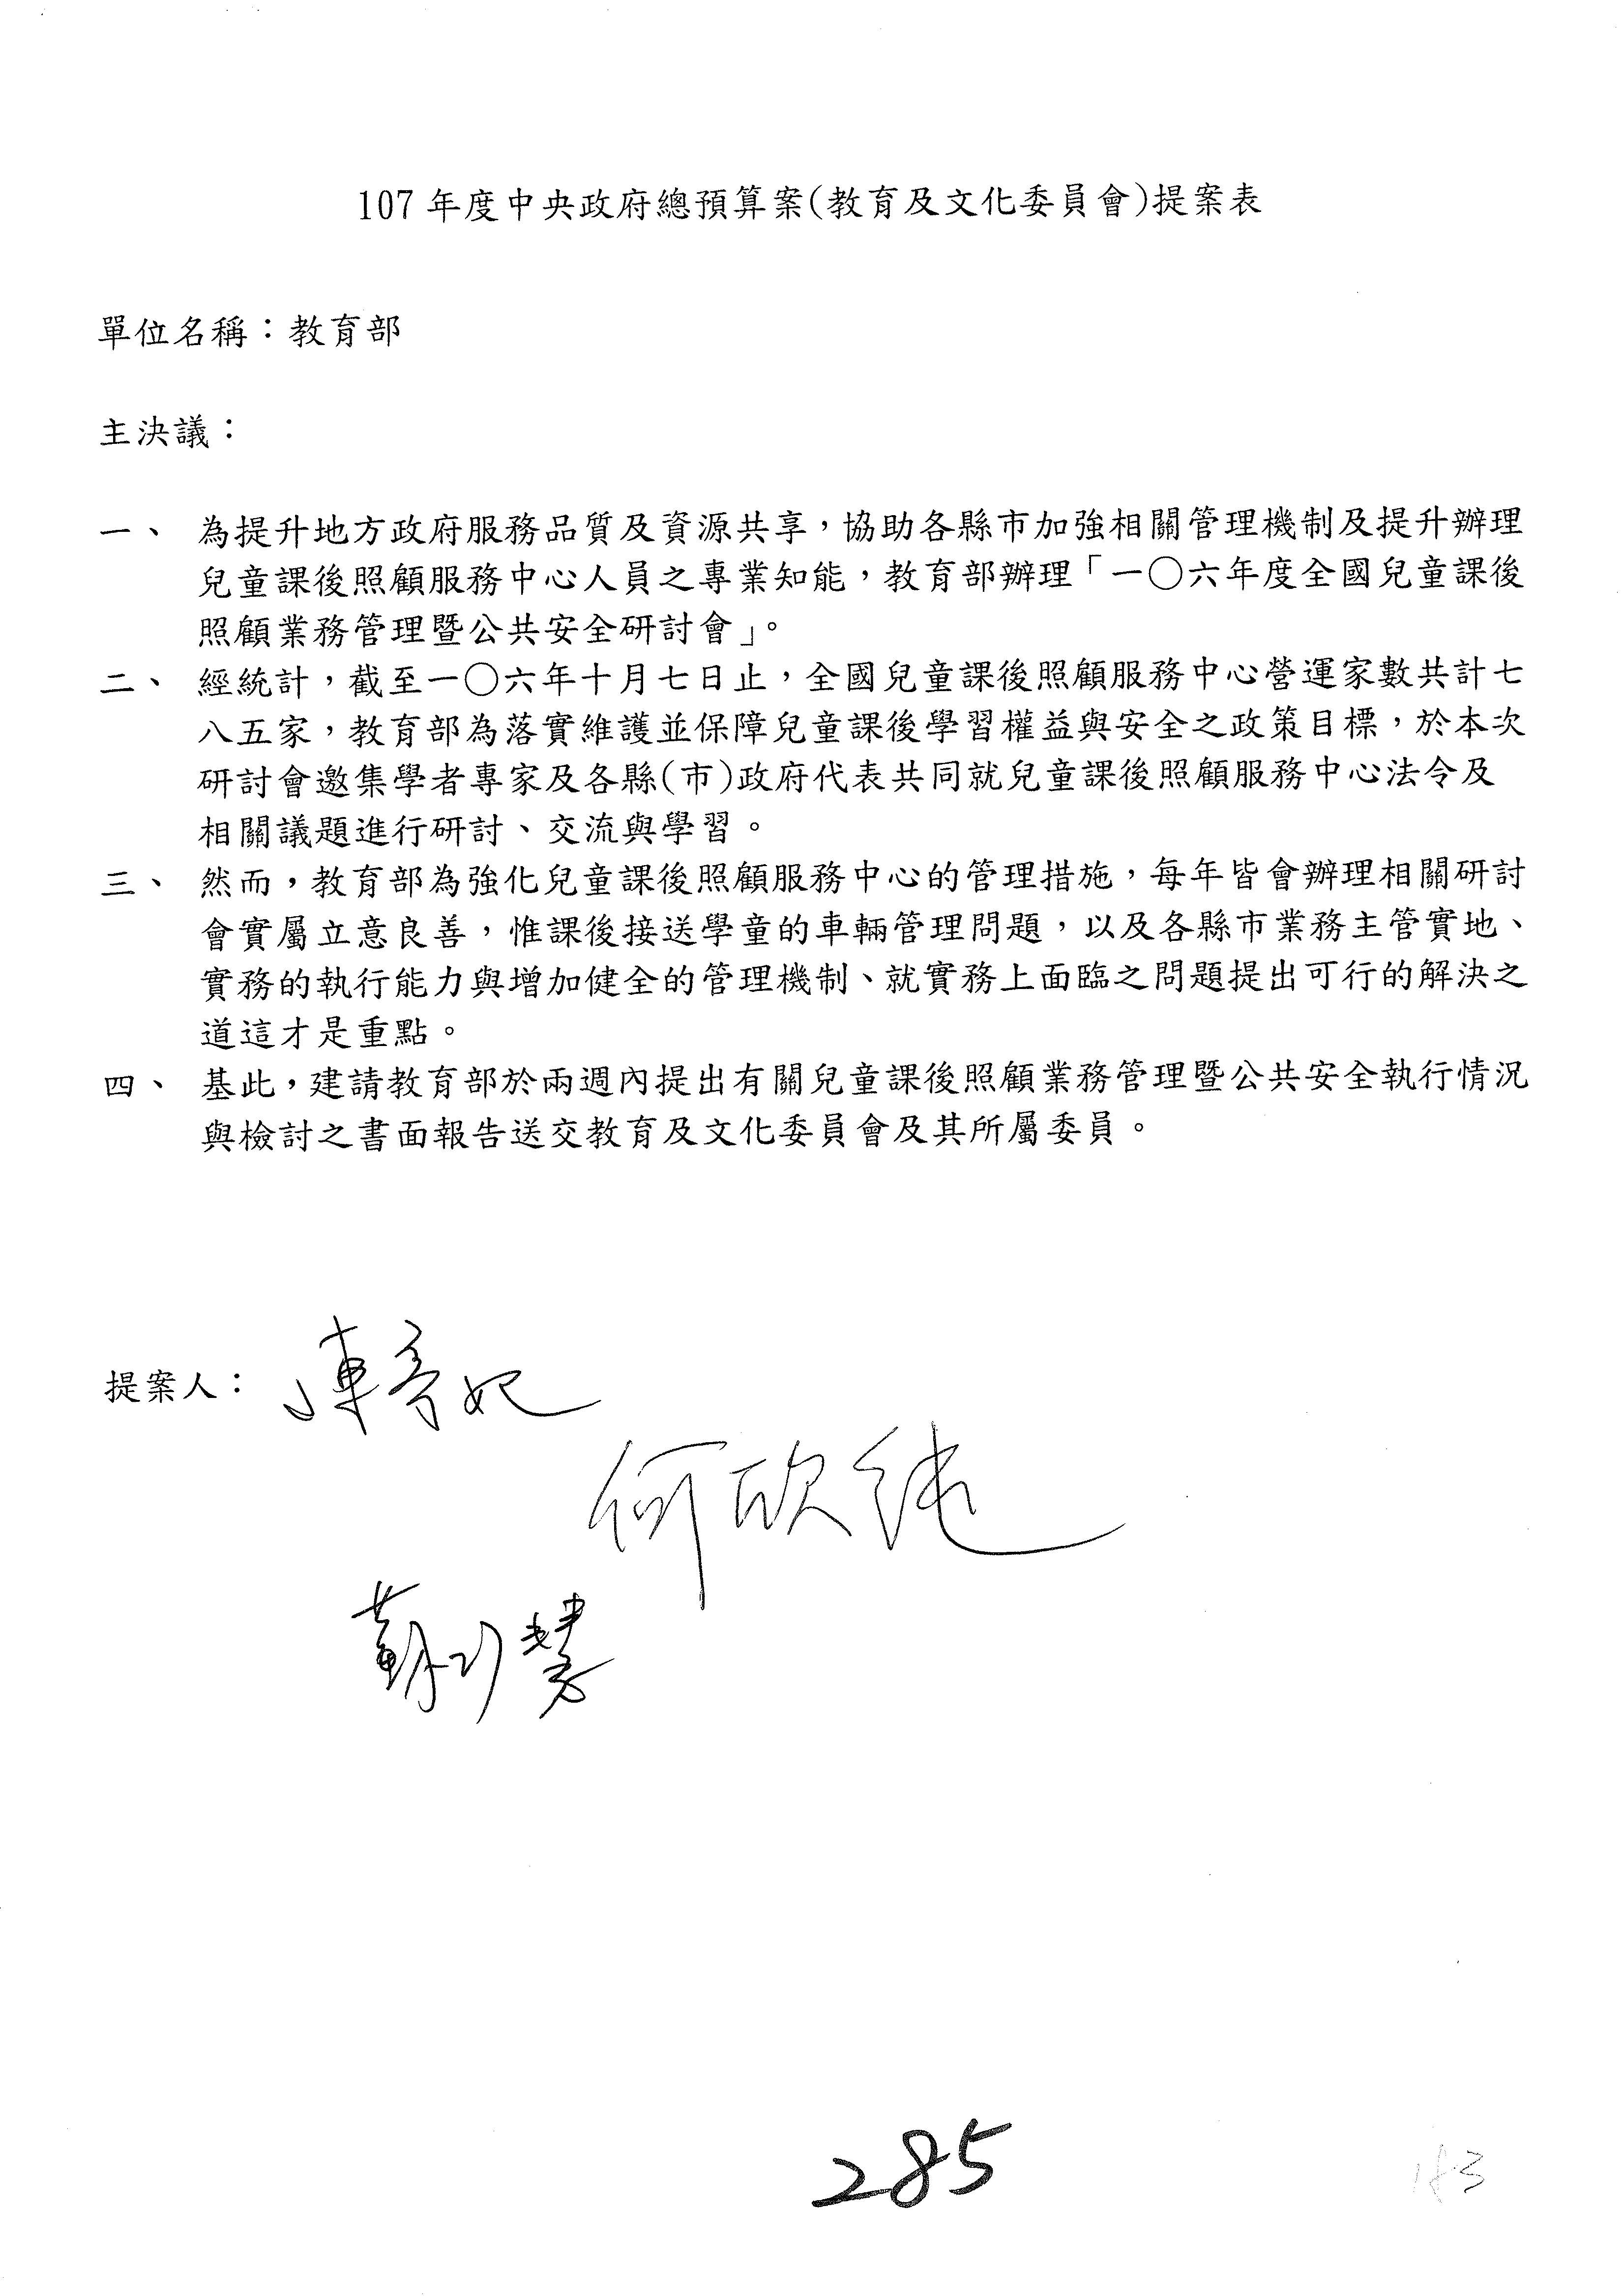 107年度中央政府總預算案(教育及文化委員會)提案表
單位名稱：教育部
主決議：
一、 為提升地方政府服務品質及資源共享，協助各縣市加強相關管理機制及提升辦理
兒童課後照顧服務中心人員之專業知能，教育部辦理「一〇六年度全國兒童課後
照顧業務管理暨公共安全研討會」。
二、 經統計，截至一〇六年十月七日止，全國兒童課後照顧服務中心營運家數共計七
八五家，教育部為落實維護並保障兒童課後學習權益與安全之政策目標，於本次
研討會邀集學者專家及各縣(市)政府代表共同就兒童課後照顧服務中心法令及
相關議題進行研討、交流與學習。
三、 然而，教育部為強化兒童課後照顧服務中心的管理措施，每年皆會辦理相關研討
會實屬立意良善，惟課後接送學童的車輛管理問題，以及各縣市業務主管實地、
實務的執行能力與增加健全的管理機制、就實務上面臨之問題提出可行的解決之
道這才是重點。
四、 基此，建請教育部於兩週內提出有關兒童課後照顧業務管理暨公共安全執行情況
與檢討之書面報告送交教育及文化委員會及其所屬委員。
提案人：
何欣純
285